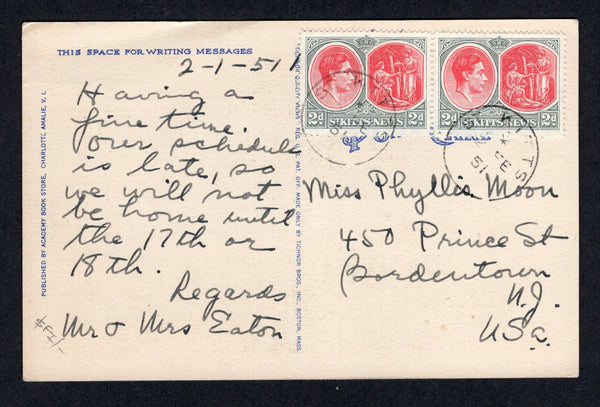 THIS SPACE FOR WRITING MESSAGES
2-1-51
Having a
fine time.
Our schedule
is late, so
we will not
be home until
the 17th or
18th.
Regards
Mr & Mrs Eaton
PUBLISHED BY ACADEMY BOOK STORE, CHARLOTTE AMALIE, V. I.
REG. U.S. PAT. OFF. MADE ONLY BY TICHNOR BROS., INC., BOSTON, MASS.
2d ST KITTS-NEVIS 2d
2d ST KITTS-NEVIS 2d
ST KITTS
51
Miss Phyllis Moon
450 Prince St
Bordentown
N.J.
USa.